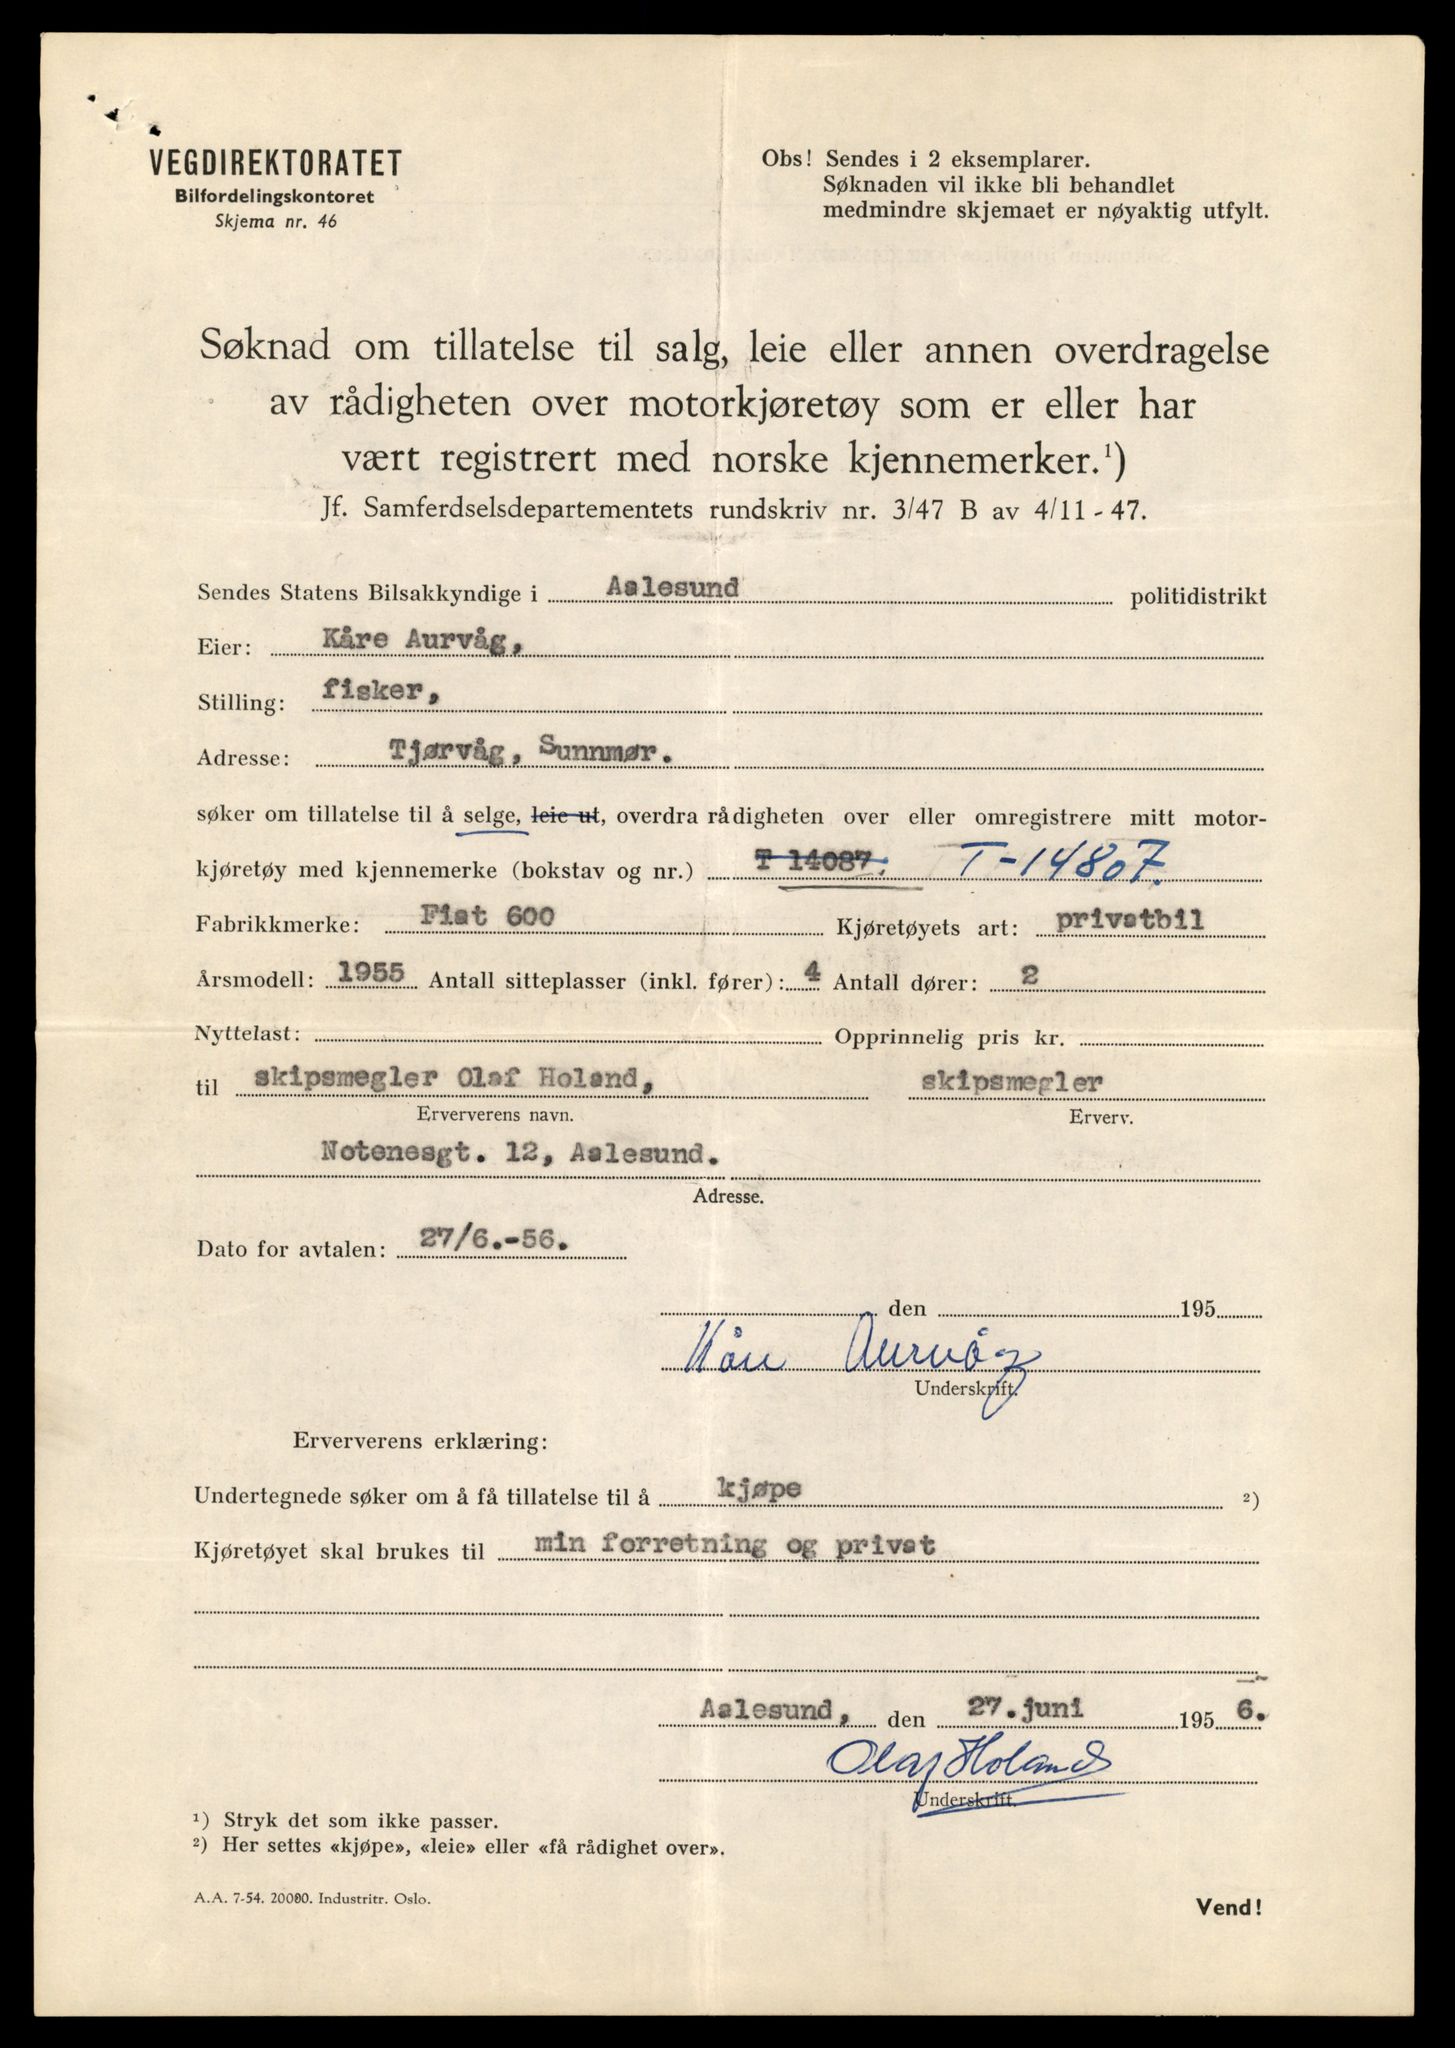 VEGDIREKTORATET
Bilfordelingskontoret
Skjema nr. 46
Obs! Sendes i 2 eksemplarer.
Søknaden vil ikke bli behandlet
medmindre skjemaet er nøyaktig utfylt.
Søknad om tillatelse til salg, leie eller annen overdragelse
av rådigheten over motorkjøretøy som er eller har
vært registrert med norske kjennemerker.¹)
Jf. Samferdselsdepartementets rundskriv nr. 3/47 B av 4/11 - 47.
Sendes Statens Bilsakkyndige i Aalesund politidistrikt
Eier: Kåre Aurvåg,
Stilling: fisker,
Adresse: Tjørvåg, Sunnmør.
søker om tillatelse til å selge, leie ut, overdra rådigheten over eller omregistrere mitt motor-
kjøretøy med kjennemerke (bokstav og nr.) T 14087. T-14807.
Fabrikkmerke: Fiat 600 Kjøretøyets art: privatbil
Årsmodell: 1955 Antall sitteplasser (inkl. fører): 4 Antall dører: 2
Nyttelast: Opprinnelig pris kr.
til skipsmegler Olaf Holand, skipsmegler
Erververens navn. Erverv.
Notenesgt. 12, Aalesund.
Adresse.
Dato for avtalen: 27/6.-56.
den 195
Kåre Aurvåg
Underskrift.
Erververens erklæring:
Undertegnede søker om å få tillatelse til å kjøpe ²)
Kjøretøyet skal brukes til min forretning og privat
Aalesund, den 27. juni 195 6.
Olaf Holand
Underskrift.
¹) Stryk det som ikke passer.
²) Her settes «kjøpe», «leie» eller «få rådighet over».
A.A. 7-54. 20000. Industritr. Oslo.
Vend!